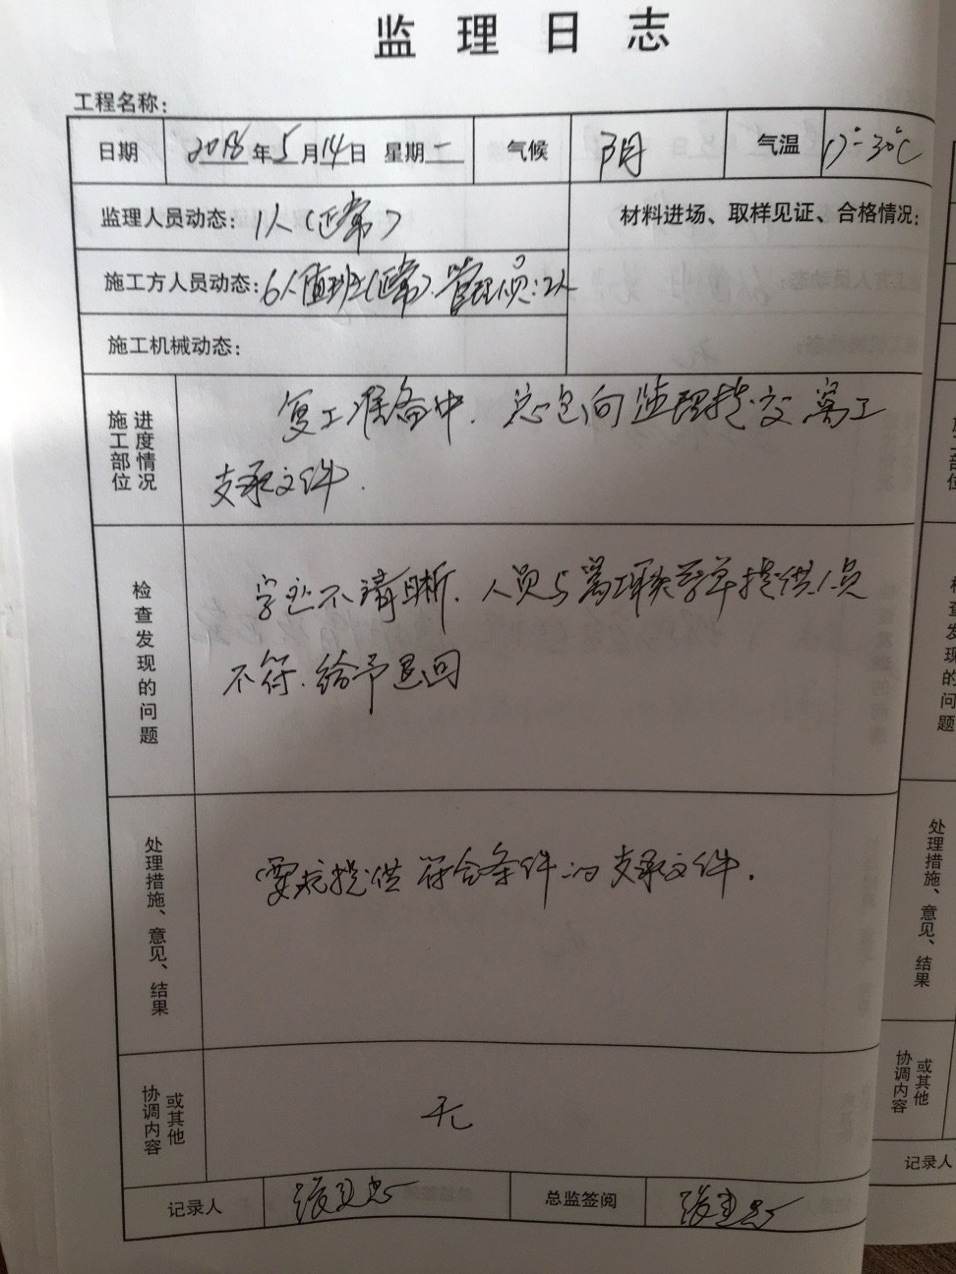 监理日志
工程名称:
日期 2018年5月14日 星期一 气候 阴 气温 17°-30℃
监理人员动态: 1人(正常)
材料进场、取样见证、合格情况:
施工方人员动态: 6人值班(正常). 管理人员:2人
施工机械动态:
施工部位
进度情况
复工准备中. 总包向监理提交离工
支承文件.
检查发现的问题
字迹不清晰. 人员与离工联系单提供人员
不符. 给予退回
处理措施、意见、结果
要求提供符合条件的支承文件.
协调内容
或其他
无
记录人 总监签阅
施工部位
检查发现的问题
处理措施、意见、结果
协调内容
或其他
记录人